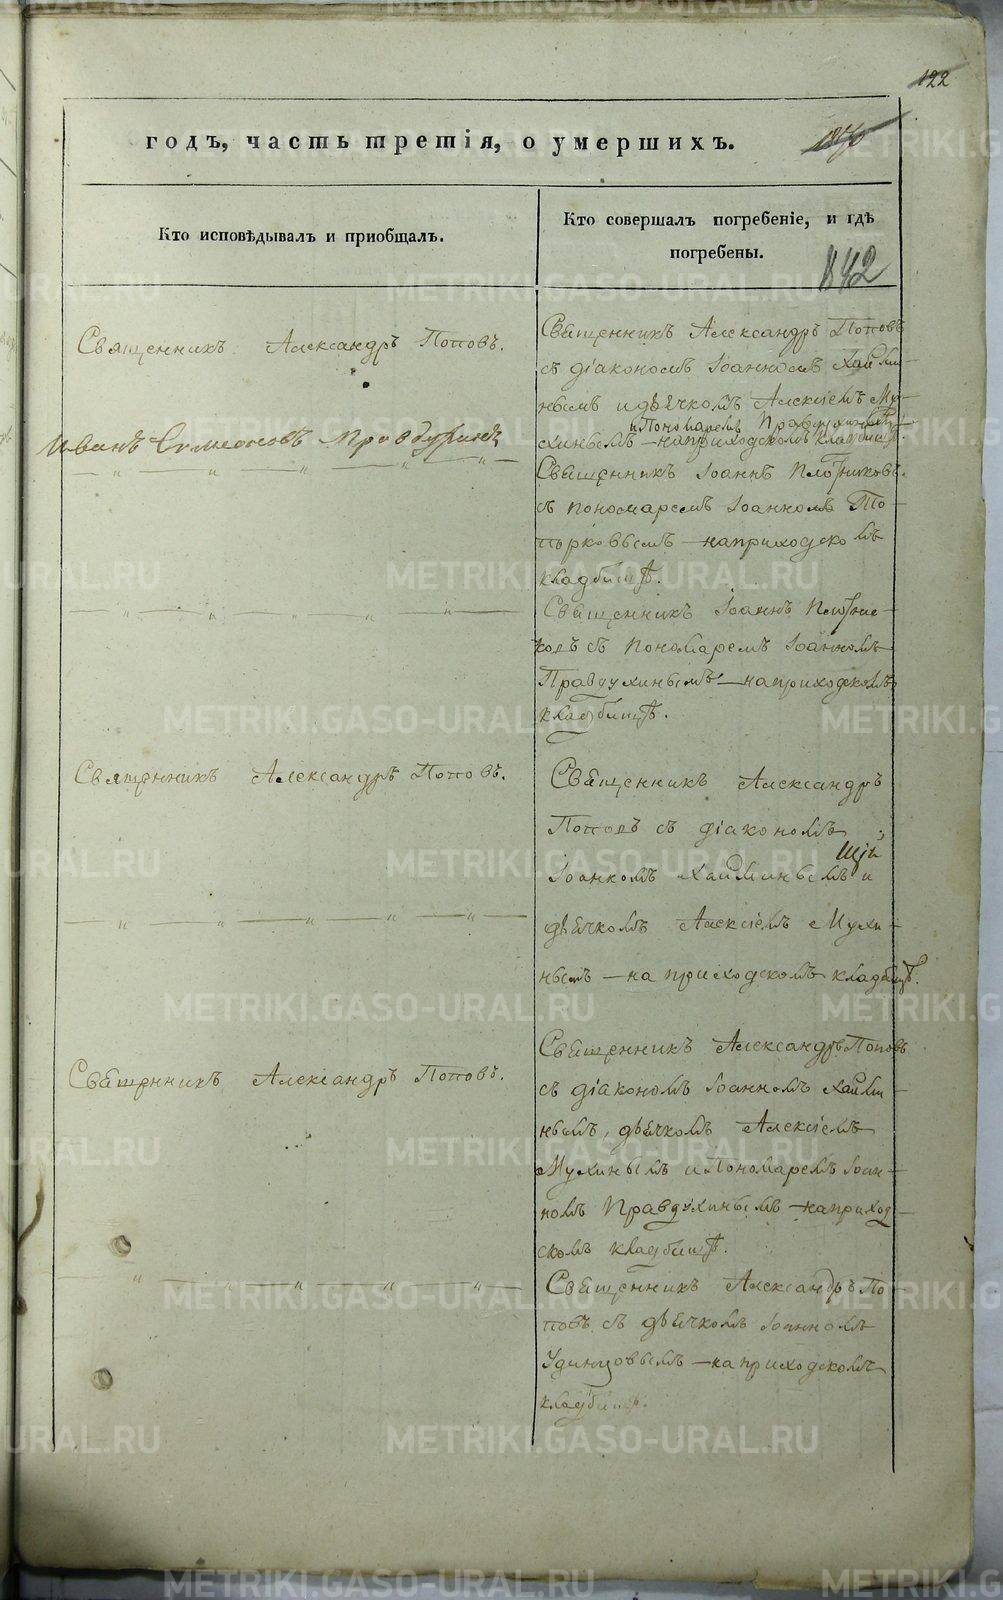 122
годъ, часть третія, о умершихъ.
Кто исповѣдывалъ и приобщалъ.
Кто совершалъ погребеніе, и гдѣ
погребены.
842
Священникъ Александръ Поповъ.
Священникъ Александръ Поповъ
съ діакономъ Іоанномъ Хайми-
нымъ и дьячкомъ Алексіемъ Му-
и Пономаремъ Правдухинымъ
хинымъ — на приходскомъ кладбищѣ.
Иванъ Симеоновъ Правдухинъ
Священникъ Іоаннъ Плотниковъ
съ пономаремъ Іоанномъ То-
порковымъ — на приходскомъ
кладбищѣ.
Священникъ Іоаннъ Плотни-
ковъ съ Пономаремъ Іоанномъ
Правдухинымъ — на приходскомъ
кладбищѣ.
Священникъ Александръ Поповъ.
Священникъ Александръ
Поповъ съ діакономъ
Іоанномъ Хайминымъ и
дьячкомъ Алексіемъ Мухи-
нымъ — на приходскомъ кладбищѣ.
Священникъ Александръ Поповъ.
Священникъ Александръ Поповъ
съ діакономъ Іоанномъ Хайми-
нымъ, дьячкомъ Алексіемъ
Мухинымъ и Пономаремъ Іоан-
номъ Правдухинымъ — на приход-
скомъ кладбищѣ.
Священникъ Александръ По-
повъ съ дьячкомъ Іоанномъ
Удинцовымъ — на приходскомъ
кладбищѣ.
METRIKI.GASO-URAL.RU